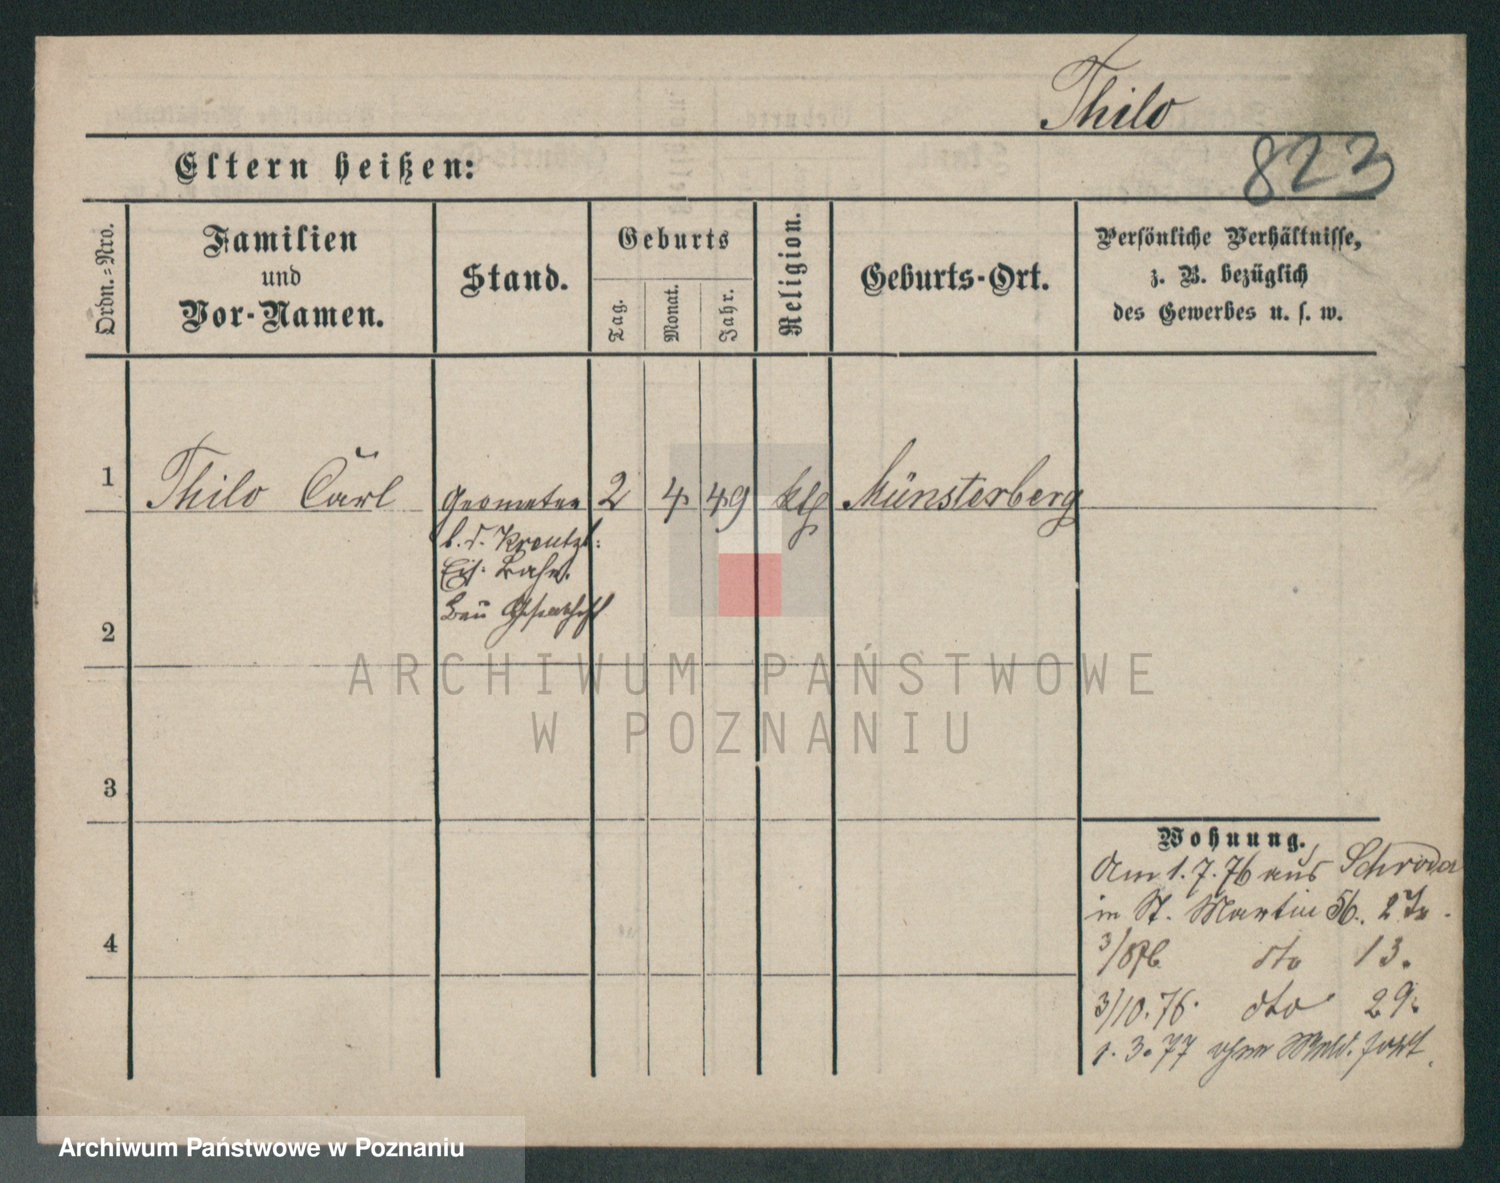 Thilo
823
Eltern heißen:
Ordn.=Nro.
Familien
und
Vor-Namen.
Stand.
Geburts
Tag.
Monat.
Jahr.
Religion.
Geburts-Ort.
Persönliche Verhältnisse,
z. B. bezüglich
des Gewerbes u. s. w.
1
Thilo Carl
Geometer
b. d. Kreutzb:
Eis: Bahn
Bau Gesellsch
2 4 49
Münsterberg
2
3
4
Wohnung.
Am 1.7.76 aus Schroda
in St. Martin 56. 2 Tr.
3/8 76 dto 13.
3/10.76. dto 29.
1.3.77 ohne Meld. fort.
ARCHIWUM PAŃSTWOWE
W POZNANIU
Archiwum Państwowe w Poznaniu